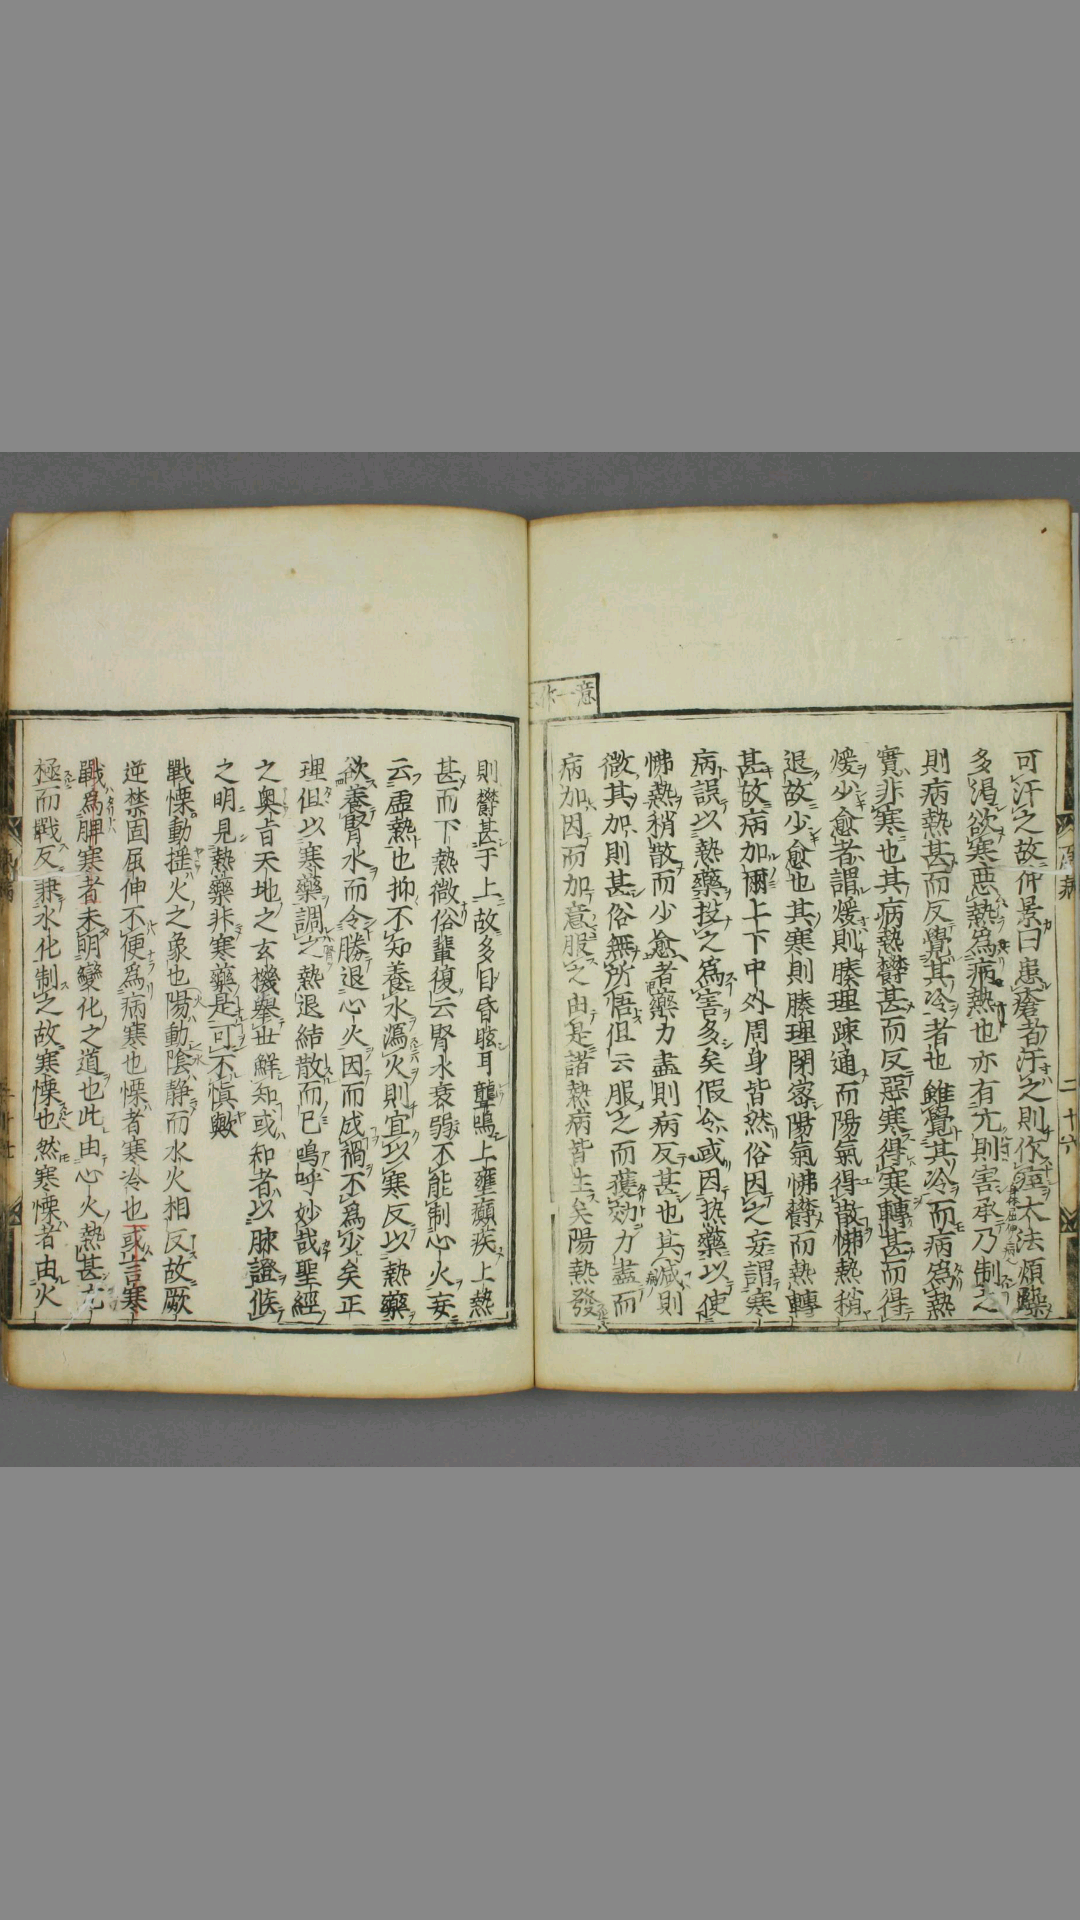 可汗之故仲景曰患瘡者汗之則作痙大法煩躁
多渴欲寒惡熱爲病熱也亦有亢則害承乃制之
則病熱甚而反覺其冷者也雖覺其冷而病爲熱
實非寒也其病熱欝甚而反惡寒得寒轉甚而得
煖少愈者謂煖則腠理踈通而陽氣得散怫熱稍
退故少愈也其寒則腠理閉密陽氣怫欝而熱轉
甚故病加爾上下中外周身皆然俗因之妄謂寒
病誤以熱藥投之爲害多矣假令或因熱藥以使
怫熱稍散而少愈者藥力盡則病反甚也其減則
微其加則甚俗無所悟但云服之而獲効力盡而
病加因而加意服之由是諸熱病皆生矣陽熱發
則欝甚于上故多目昏眩耳聾鳴上壅癲疾上熱
甚而下熱微俗輩復云腎水衰弱不能制心火妄
云虛熱也抑不知養水瀉火則宜以寒反以熱藥
欲養腎水而令勝退心火因而成禍不爲少矣正
理但以寒藥調之熱退結散而已嗚呼妙哉聖經
之奧旨天地之玄機舉世鮮知或知者以脉證候
之明見熱藥非寒藥是可不愼歟
戰慄動揺火之象也陽動陰静而水火相反故厥
逆禁固屈伸不便爲病寒也慄者寒冷也或言寒
戰爲脾寒者未明變化之道也此由心火熱甚亢
極而戰反兼水化制之故寒慄也然寒慄者由火
意一你
二十六